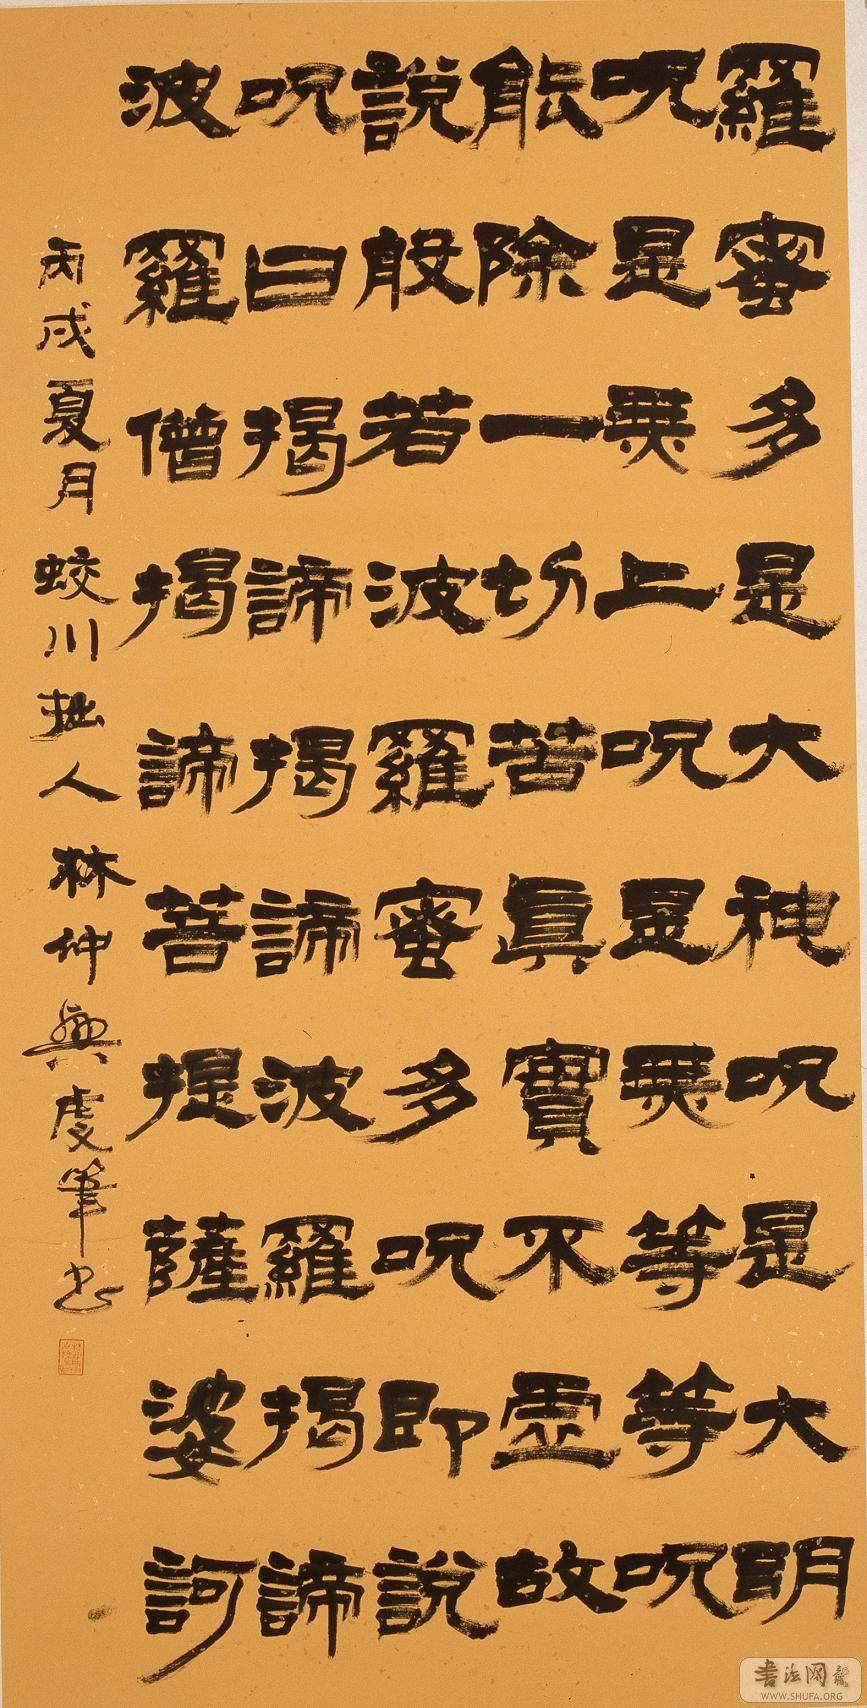 羅蜜多是大神呪是大明
呪是無上呪是無等等呪
能除一切苦眞實不虛故
說般若波羅蜜多呪即說
呪曰揭諦揭諦波羅揭諦
波羅僧揭諦菩提薩婆訶
丙戌夏月蛟川拙人林仲興虔筆書
書法网
WWW.SHUFA.ORG